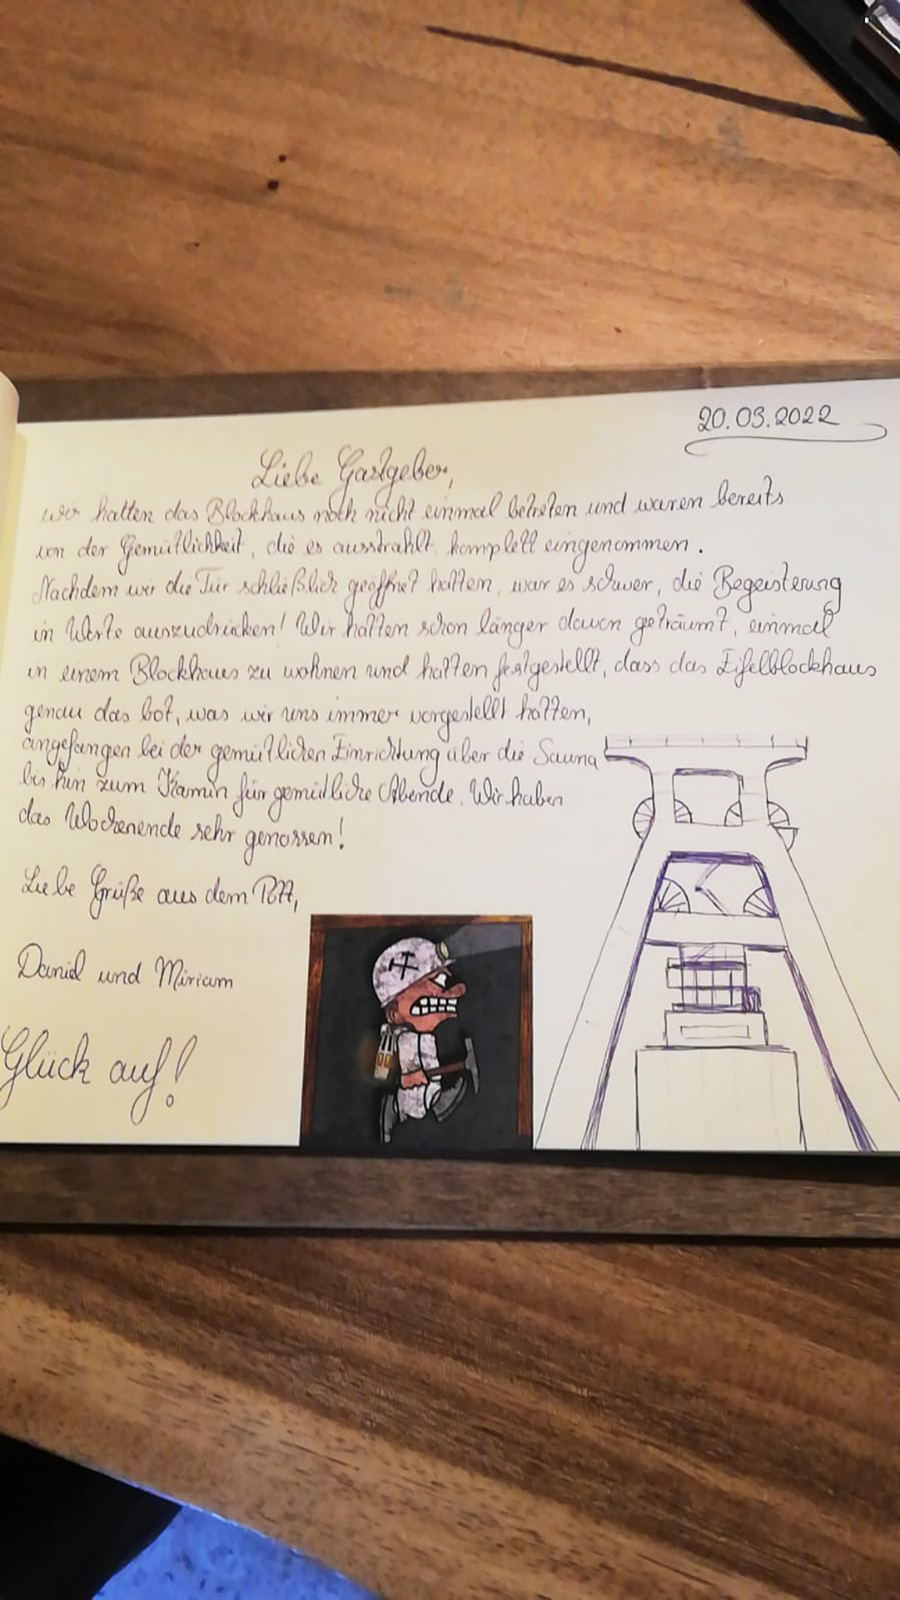 20.03.2022
Liebe Gastgeber,
wir hatten das Blockhaus noch nicht einmal betreten und waren bereits
von der Gemütlichkeit, die es ausstrahlt, komplett eingenommen.
Nachdem wir die Tür schließlich geöffnet hatten, war es schwer, die Begeisterung
in Worte auszudrücken! Wir hatten schon länger davon geträumt, einmal
in einem Blockhaus zu wohnen und hatten festgestellt, dass das Eifelblockhaus
genau das bot, was wir uns immer vorgestellt hatten,
angefangen bei der gemütlichen Einrichtung über die Sauna
bis hin zum Kamin für gemütliche Abende. Wir haben
das Wochenende sehr genossen!
Liebe Grüße aus dem Pott,
Daniel und Miriam
Glück auf!